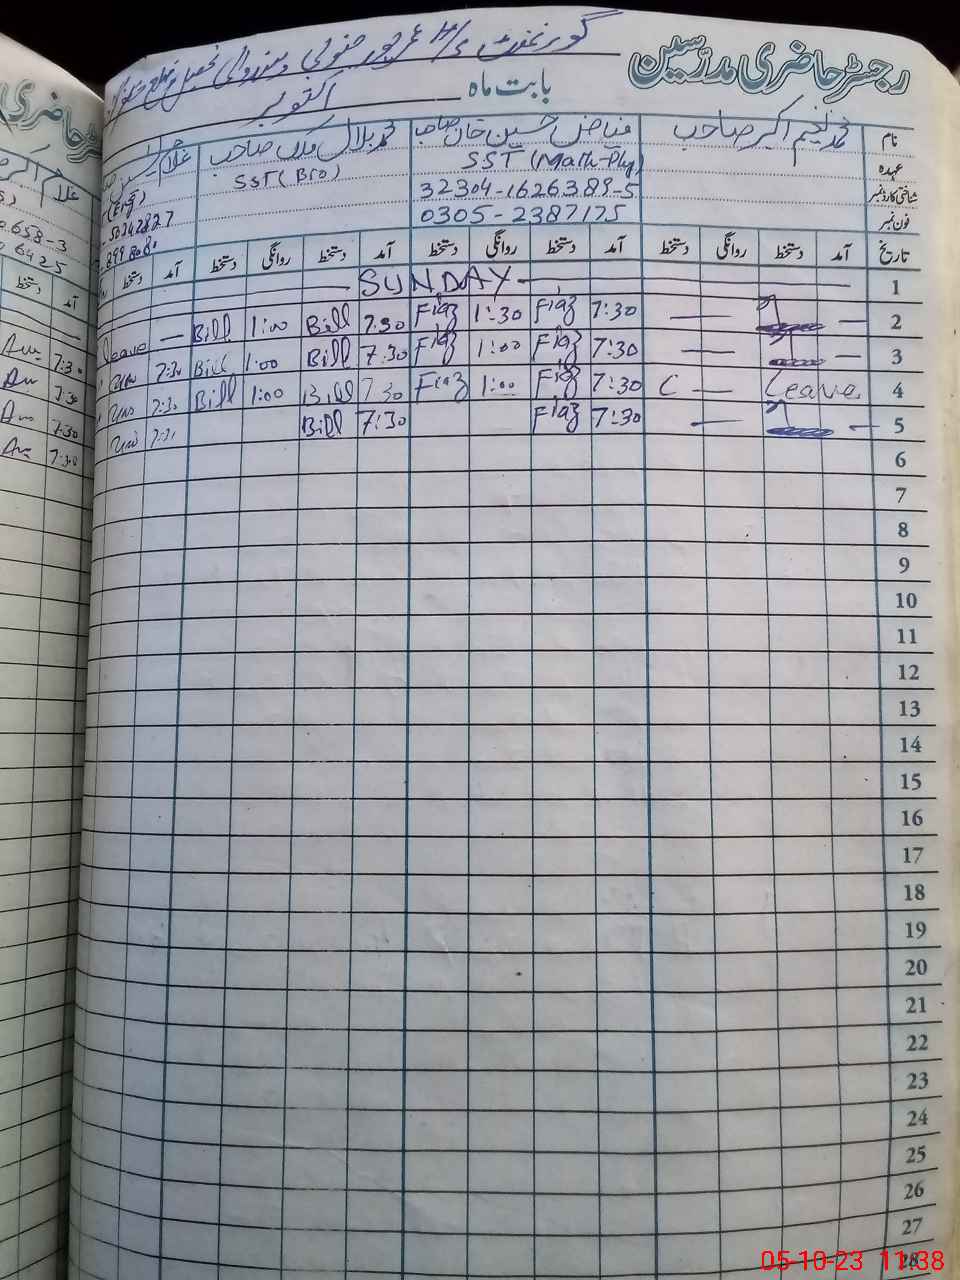 رجسٹر حاضری مدرسین
گورنمنٹ
بابت ماہ اکتوبر
نام محمد نعیم اکبر صاحب فیاض حسین خان صاحب محمد بلال ملک صاحب غلام
عہدہ SST (Math-Phy) SST (Bio)
شناختی کارڈ نمبر 32304-1626389-5
فون نمبر 0305-2387175
تاریخ آمد دستخط روانگی دستخط آمد دستخط روانگی دستخط آمد دستخط روانگی دستخط آمد دستخط
1 SUNDAY
2 7:30 Fiaz 1:30 Fiaz 7:30 Bill 1:00 Bill leave
3 7:30 Fiaz 1:00 Fiaz 7:30 Bill 1:00 Bill 7:30
4 Leave C 7:30 Fiaz 1:00 Fiaz 7:30 Bill 1:00 Bill 7:30
5 7:30 Fiaz 7:30 Bill
6
7
8
9
10
11
12
13
14
15
16
17
18
19
20
21
22
23
24
25
26
27
28
غلام اکبر
658-3
6425
آمد دستخط
7:30
7:30
7:30
7:30
05-10-23 11:38